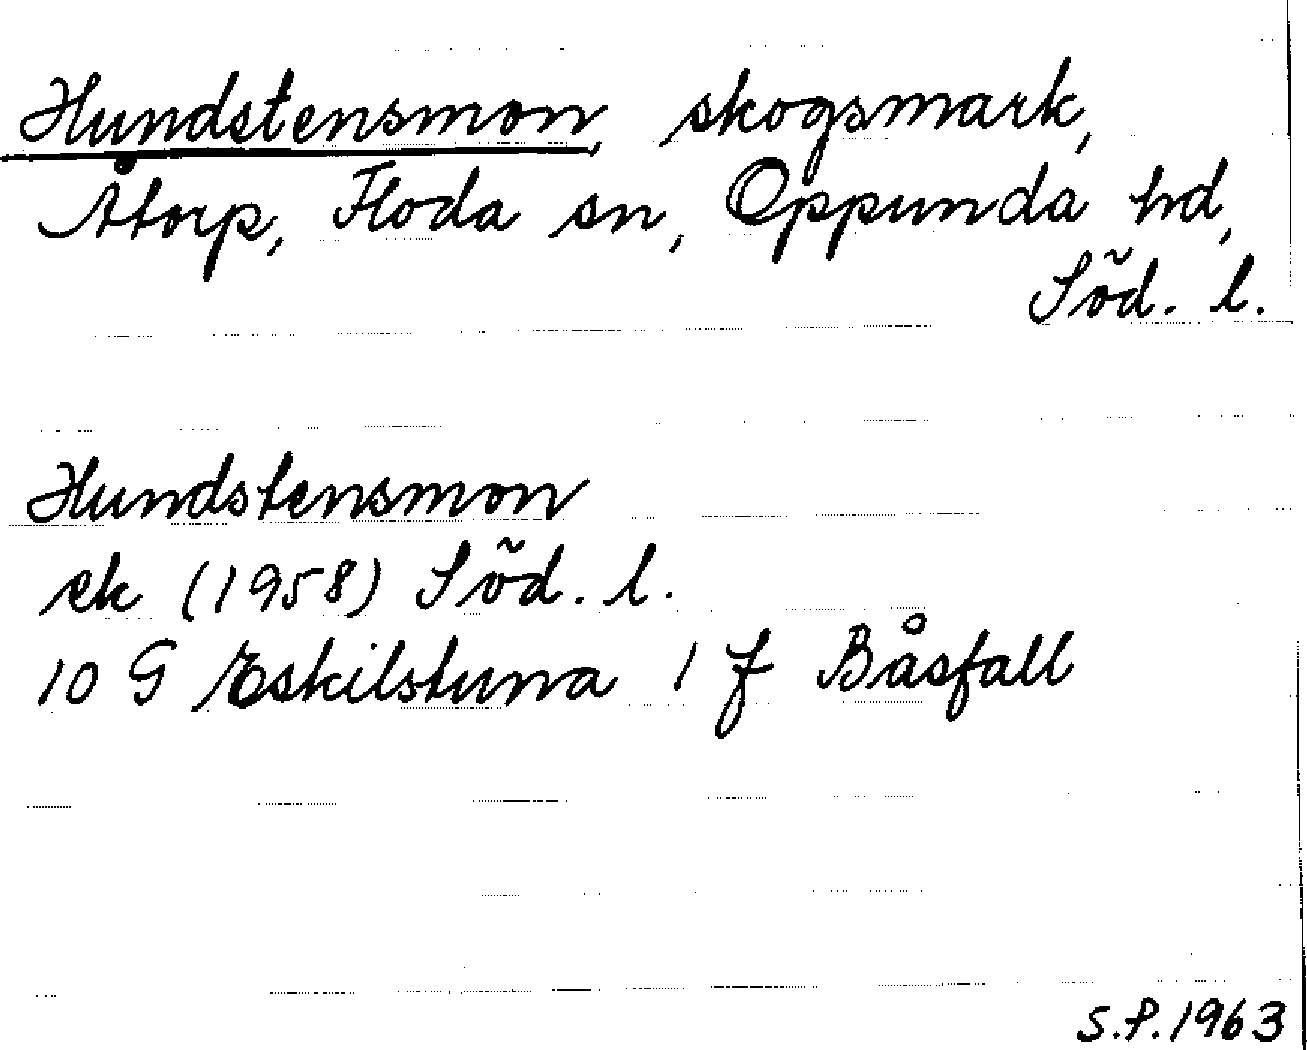 Hundstensmon, skogsmark,
Åtorp, Floda sn, Oppunda hd,
Söd. l.
Hundstensmon
ek (1958) Söd. l.
10 G Eskilstuna 1 f Båsfall
S.P. 1963